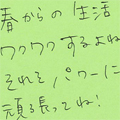 春からの生活
ワクワクするよね
それをパワーに
頑張ってね!